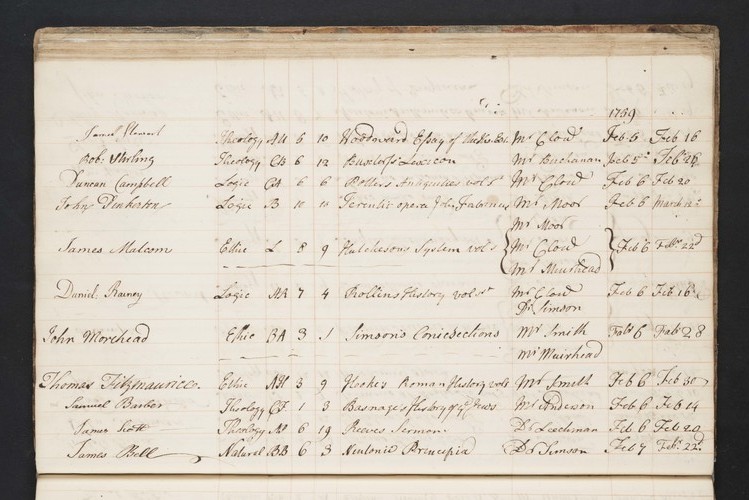 1759
James Stewart Theology AU 6 10 Woodward Essay of the Mr Clow Feb. 6 Feb 16
Rob. Stirling Theology CB 6 12 Buxtorfs Lexicon Mr Buchanan Feb 5 Feb. 26
Duncan Campbell Logic CA 6 6 Potters Antiquities vol Mr Clow Feb 6 Feb 20
John Logic B 11 11 Terentii opera Mr Moor Feb 6 March
Mr Moor
James Malcom Ethic L 8 9 Hutchesons System vol Mr Clow Feb 6 22d
Mr Muirhead
Daniel Rainey Logic AR 7 4 Rollins History vol Mr Clow Feb 6 Feb 16
Dr Simson
John Morehead Ethic BA 3 1 Simsons Conicsections Mr Smith Feb 6 28
Mr Muirhead
Thomas Fitzmaurice Ethic AH 3 9 Hookes Roman History vol Mr Smith Feb 6 Feb 30
Samuel Barber Theology CF 1 3 Basnages History of ye Jews Mr Anderson Feb 6 Feb 14
James Scott Theology 6 19 Reeves Sermon Dr Leechman Feb 6 Feb 20
James Bell Natural BB 6 3 Neutonis Principia Dr Simson Feb 7 Feb. 22d